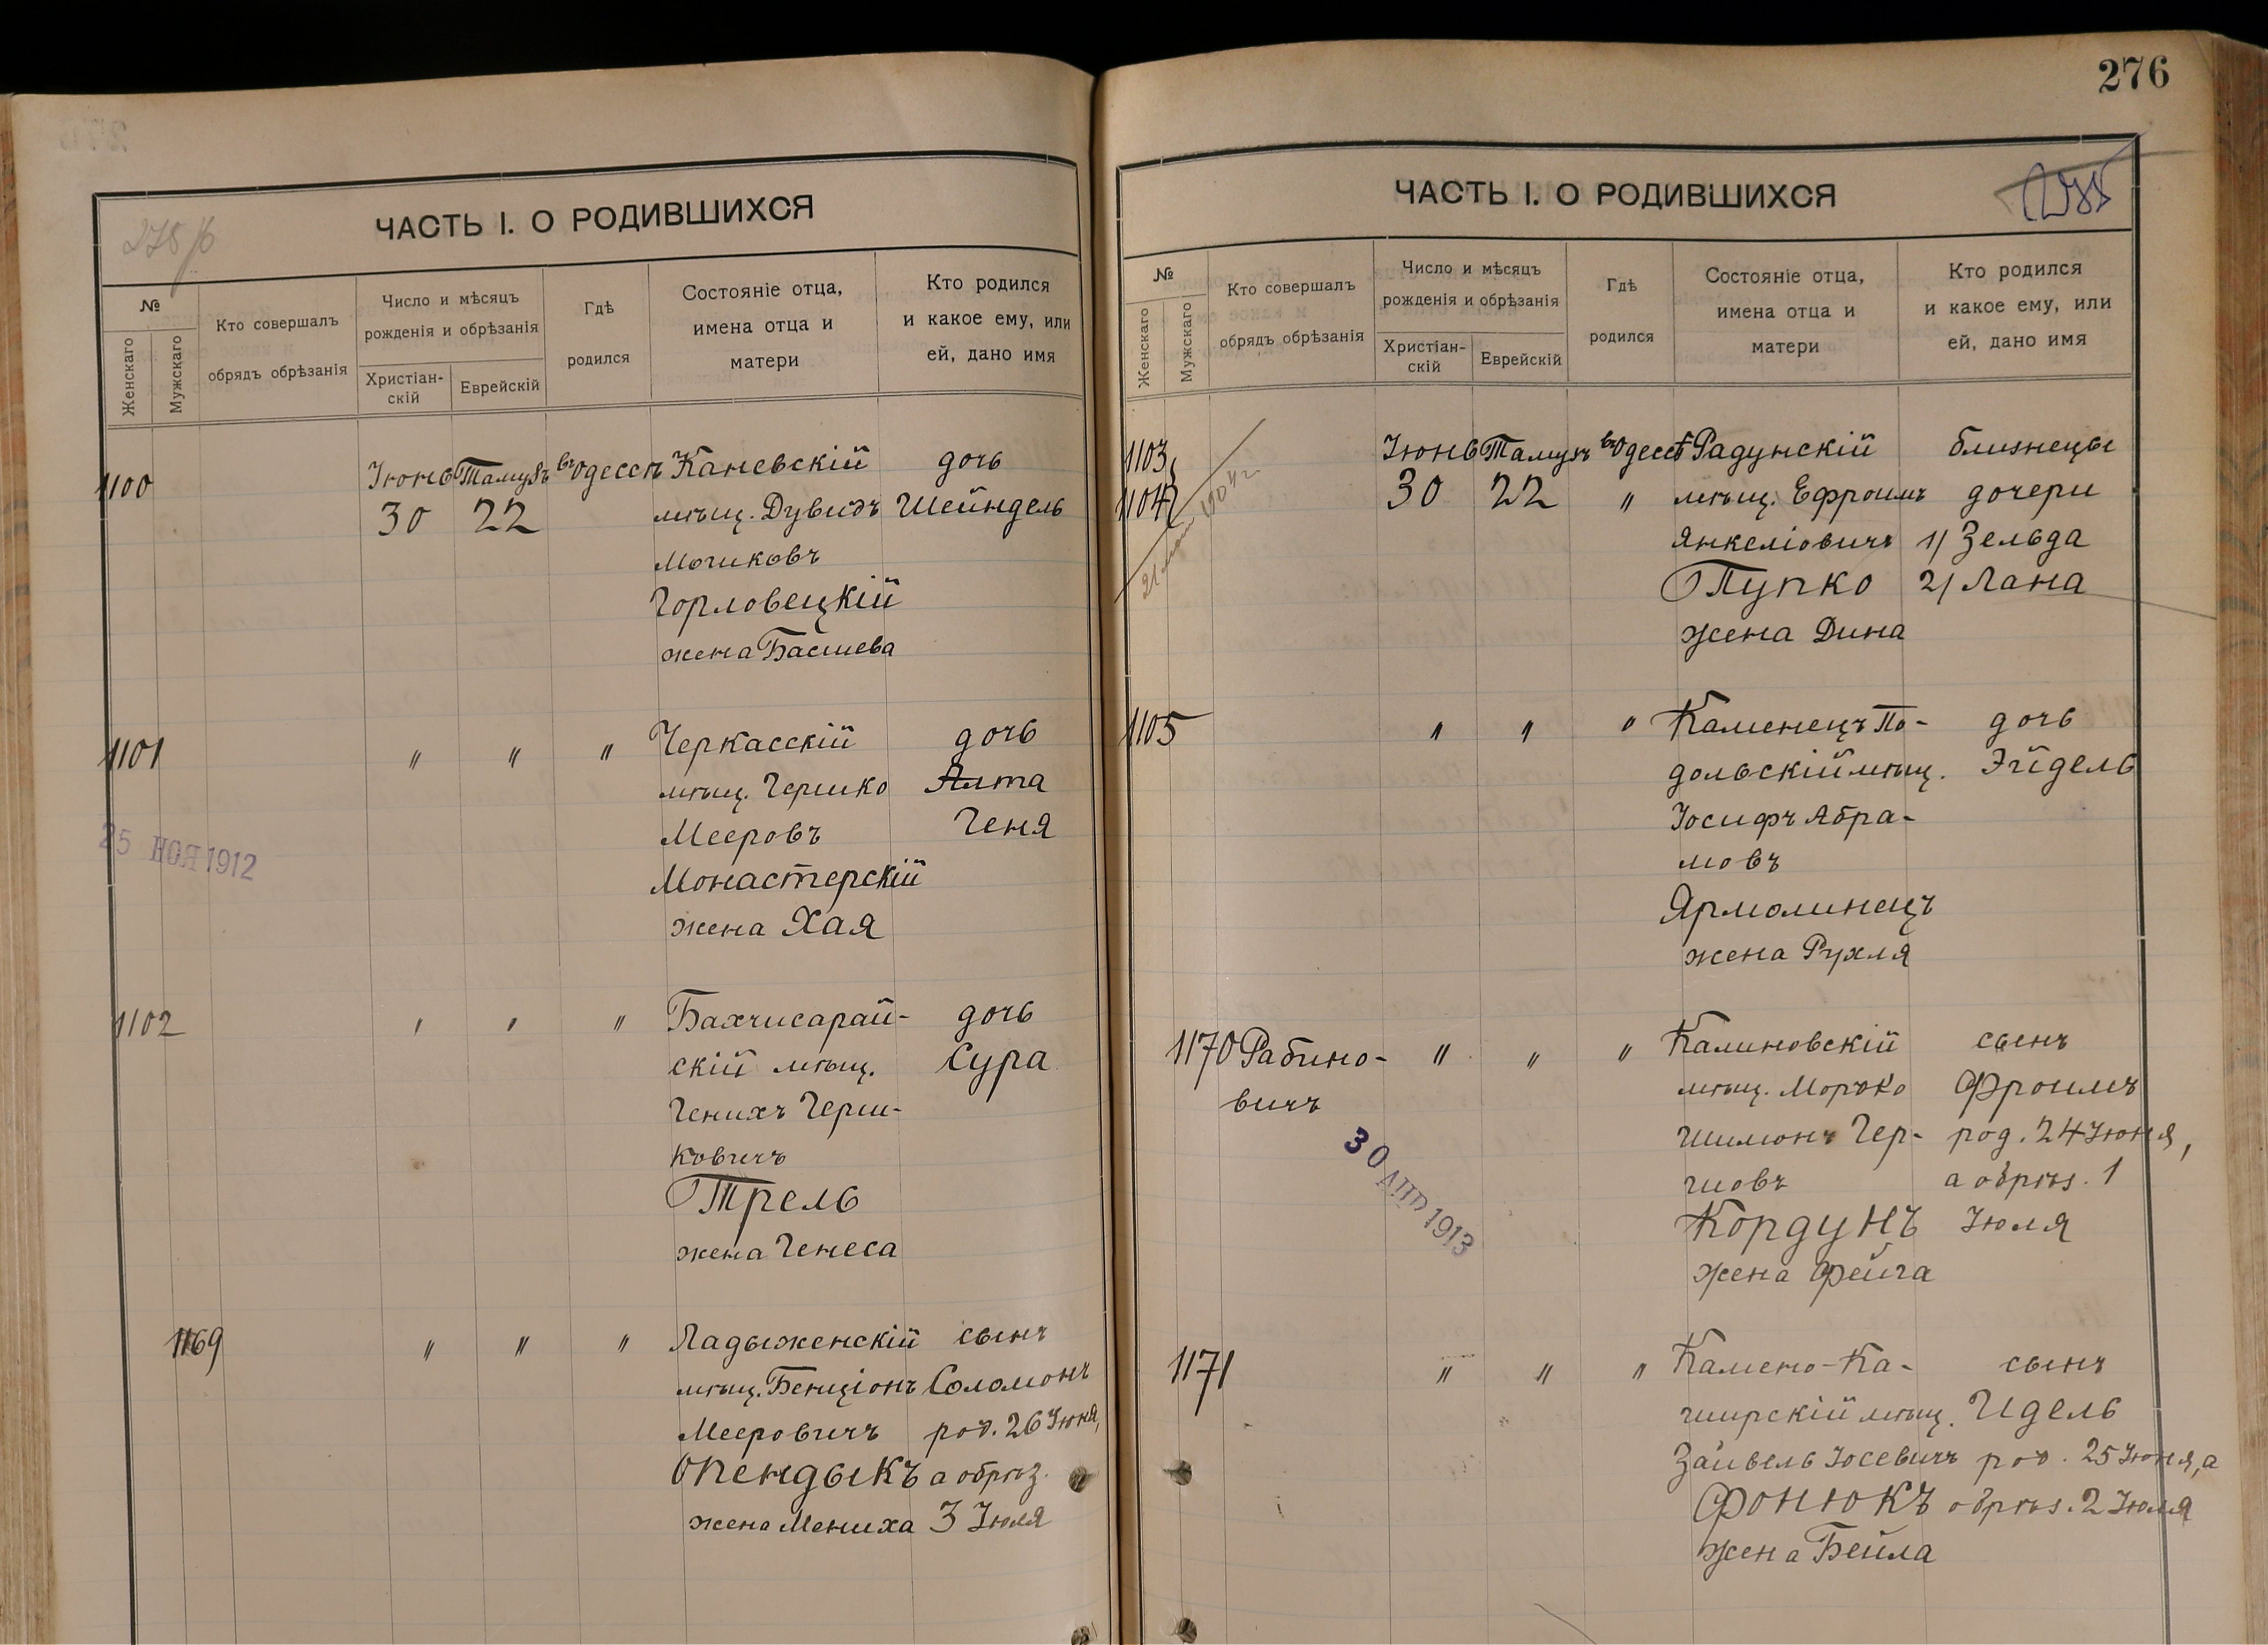 276
ЧАСТЬ I. О РОДИВШИХСЯ
№
Женскаго
Мужскаго
Кто совершалъ
обрядъ обрѣзанія
Число и мѣсяцъ
рожденія и обрѣзанія
Христіан-
скій
Еврейскій
Гдѣ
родился
Состояніе отца,
имена отца и
матери
Кто родился
и какое ему, или
ей, дано имя
1100 Іюнь Тамузъ въ Одессѣ Каневскій дочь
30 22 мѣщ. Дувидъ Шейндель
Мошковъ
Горловецкій
жена Басшева
1101 " " " Черкасскій дочь
мѣщ. Гершко Алта
Мееровъ Геня
25 НОЯ 1912
Монастерскій
жена Хая
1102 " " " Бахчисарай- дочь
скій мѣщ. Сура
Генихъ Герш-
ковичъ
Трель
жена Генеса
1169 " " " Ладыженскій сынъ
мѣщ. Бенціонъ Соломонъ
Мееровичъ род. 26 Іюня,
Опендыкъ а обрѣз.
жена Мениха 3 Іюля
ЧАСТЬ I. О РОДИВШИХСЯ
№
Женскаго
Мужскаго
Кто совершалъ
обрядъ обрѣзанія
Число и мѣсяцъ
рожденія и обрѣзанія
Христіан-
скій
Еврейскій
Гдѣ
родился
Состояніе отца,
имена отца и
матери
Кто родился
и какое ему, или
ей, дано имя
1103 Іюнь Тамузъ въ Одессѣ Радунскій близнецы
1104 30 22 " мѣщ. Ефроимъ дочери
Янкеліовичъ 1/ Зельда
Пупко 2/ Лана
жена Дина
1105 " " " Каменецъ По- дочь
дольскій мѣщ. Эйдель
Іосифъ Абра-
мовъ
Ярмолинецъ
жена Рухля
1170 Рабино- " " " Калиновскій сынъ
вичъ мѣщ. Мордко Фроимъ
30 АПР 1913
Шимонъ Гер- род. 24 Іюня,
шовъ а обрѣз. 1
Кордунъ Іюля
жена Фейга
1171 " " " Камено-Ка- сынъ
ширскій мѣщ. Идель
Зайвель Іосевичъ род. 25 Іюня, а
Фонюкъ обрѣз. 2 Іюля
жена Бейла